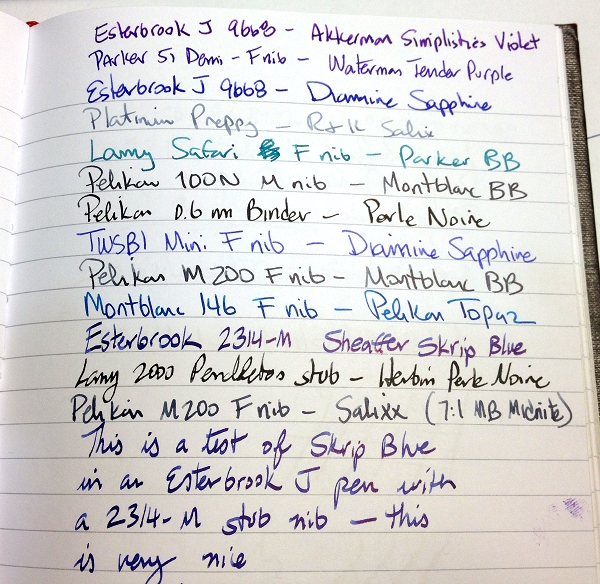 Esterbrook J 9668 - Akkerman Simplisties Violet
Parker 51 Demi - F nib - Waterman Tender Purple
Esterbrook J 9668 - Diamine Sapphire
Platinum Preppy - R+K Salix
Lamy Safari F nib - Parker BB
Pelikan 100N M nib - Montblanc BB
Pelikan 0.6 mm Binder - Perle Noire
TWSBI Mini F nib - Diamine Sapphire
Pelikan M200 F nib - Montblanc BB
Montblanc 146 F nib - Pelikan Topaz
Esterbrook 2314-M Sheaffer Skrip Blue
Lamy 2000 Pendleton stub - Herbin Perle Noire
Pelikan M200 F nib - Salixx (7:1 MB Midnite)
This is a test of Skrip Blue
in an Esterbrook J pen with
a 2314-M stub nib - this
is very nice